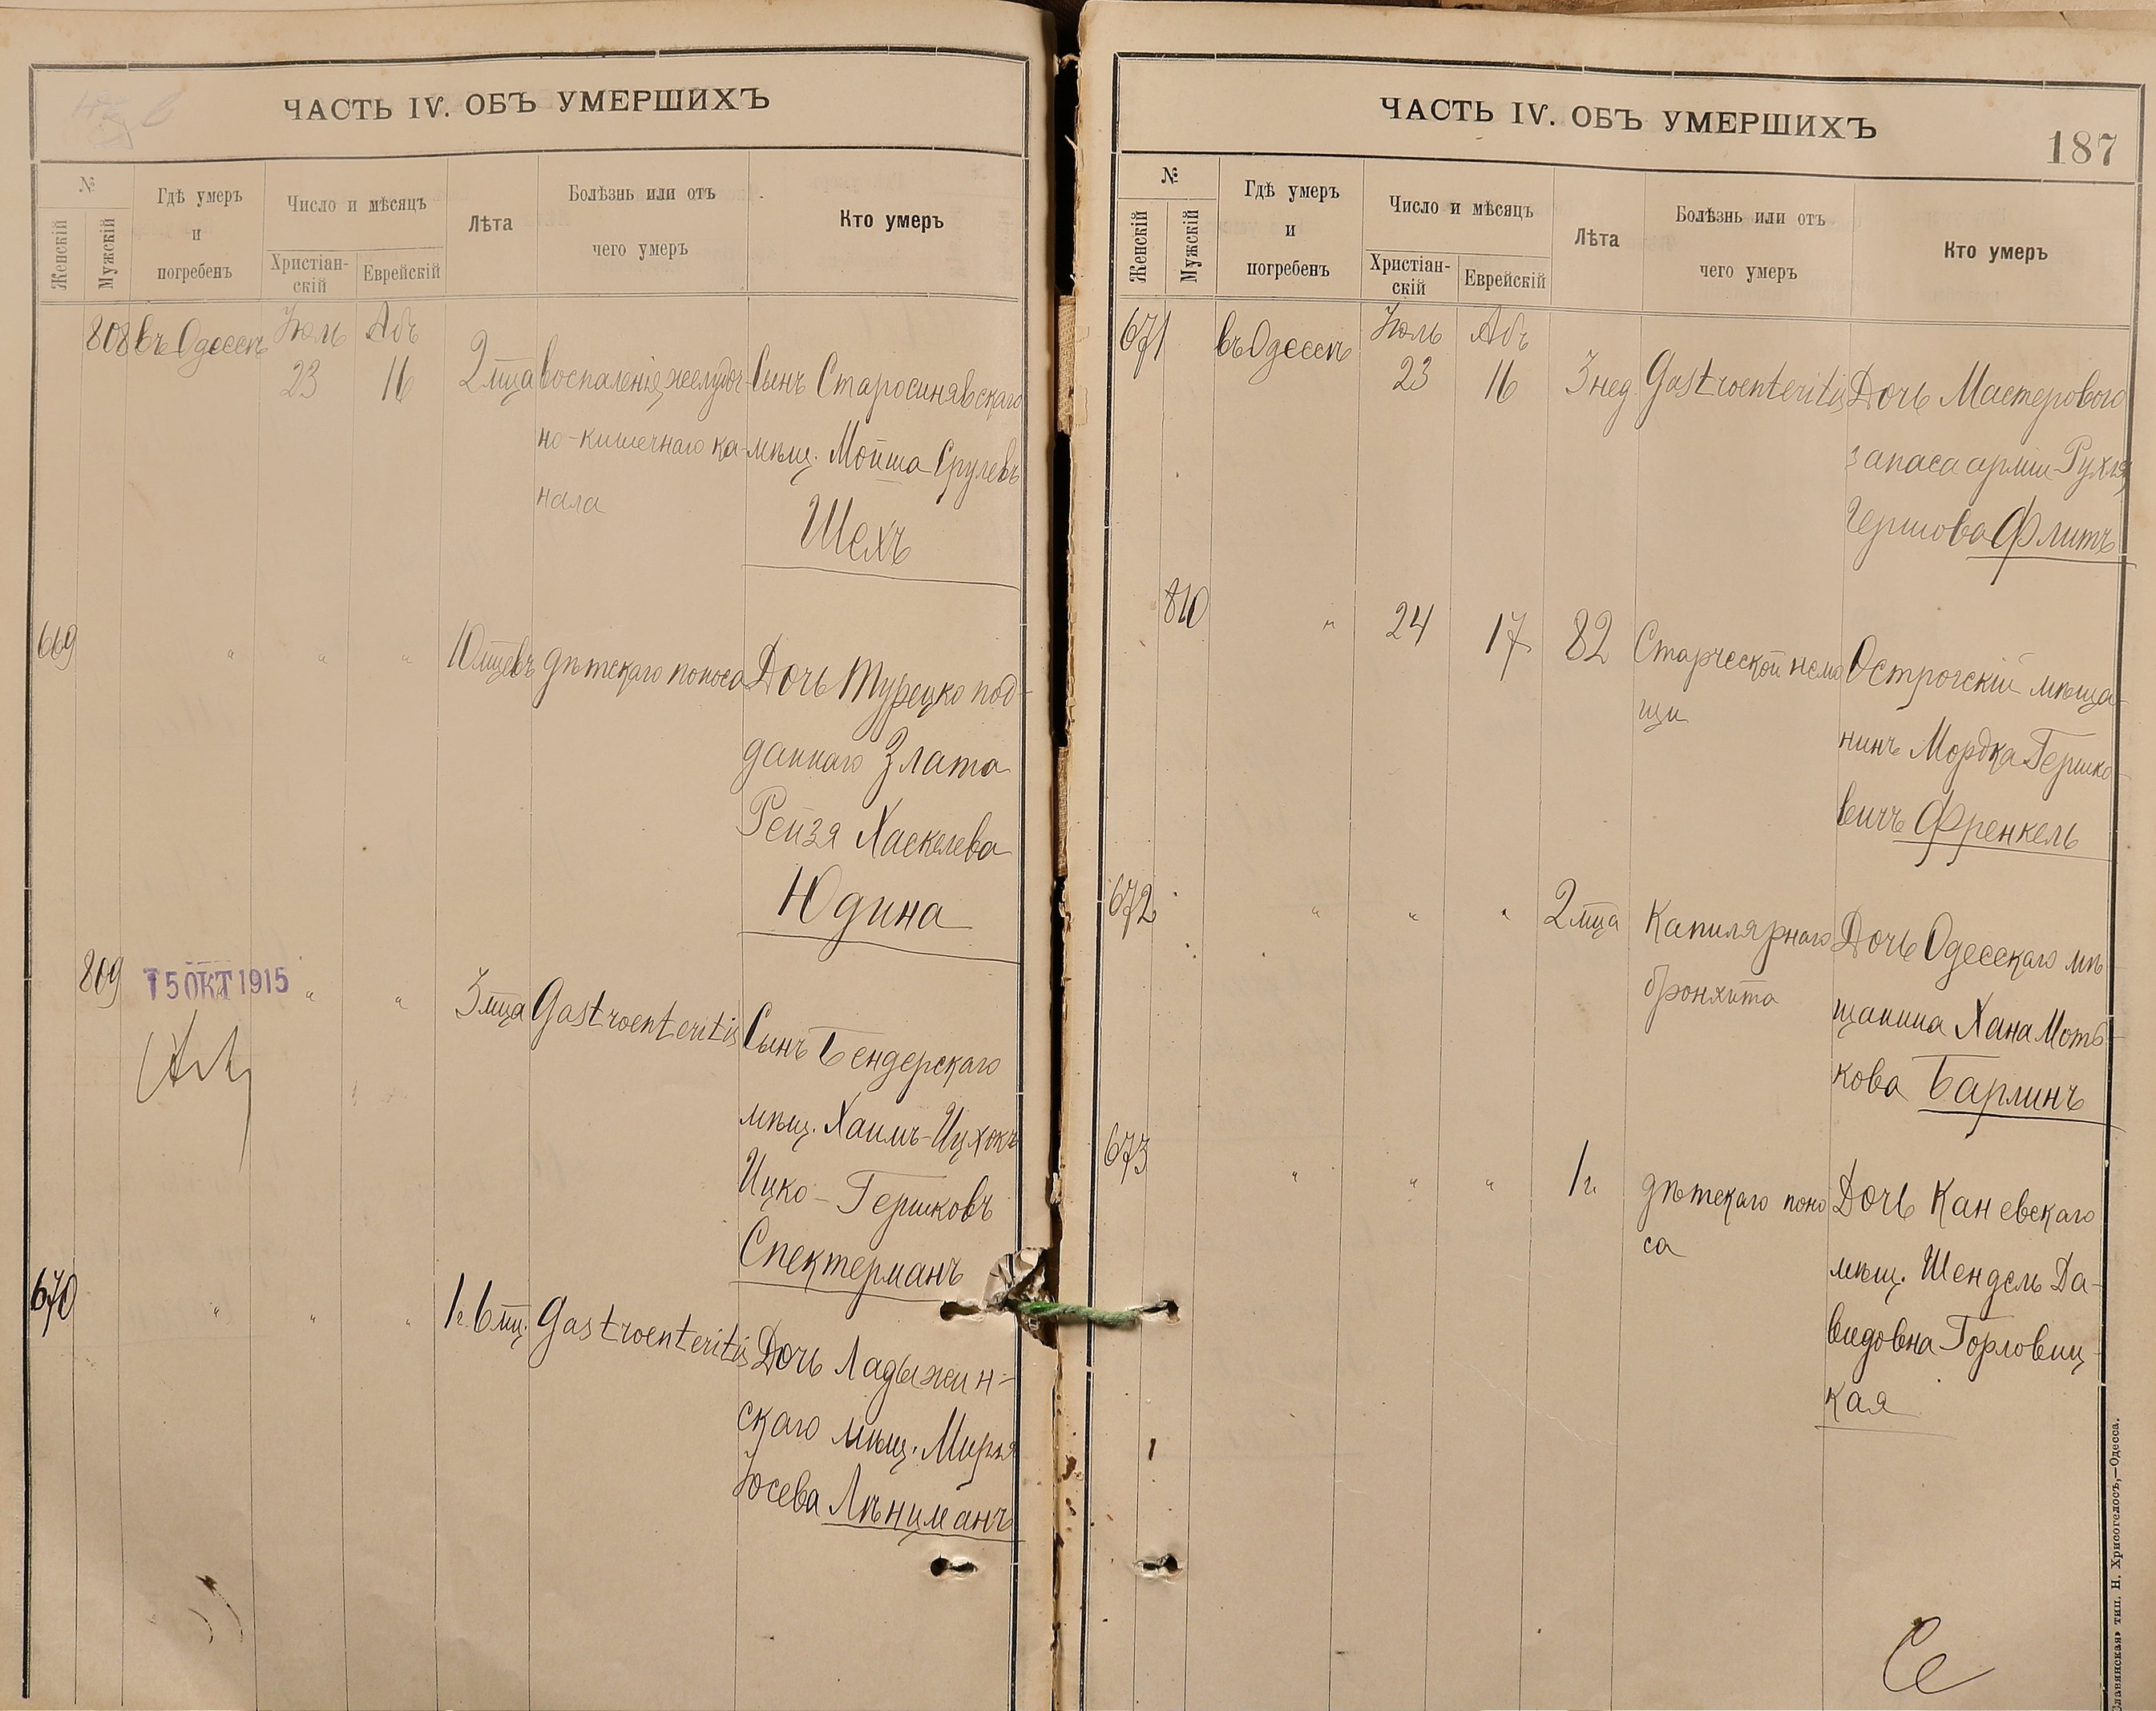 ЧАСТЬ IV. ОБЪ УМЕРШИХЪ
№
Женскій
Мужскій
Гдѣ умеръ
и
погребенъ
Число и мѣсяцъ
Христіан-
скій
Еврейскій
Лѣта
Болѣзнь или отъ
чего умеръ
Кто умеръ
808 въ Одессѣ Іюль Абъ
23 16 2 мца воспаленія желудоч- Сынъ Старосинявскаго
но-кишечнаго ка- мѣщ. Мойша Срулевъ
нала
Шехъ
669 " " " 10 мцевъ дѣтскаго поноса Дочь Турецко под-
даннаго Злата
Рейзя Хаскелева
Юдина
809 15 ОКТ 1915 " " 3 мца Gastroenteritis Сынъ Бендерскаго
мѣщ. Хаимъ-Ицхокъ
Ицко-Гершковъ
Спектерманъ
670 " " " 1 г. 6 мц. Gastroenteritis Дочь Ладыжин-
скаго мѣщ. Мирья
Іосева Лѣнцманъ
ЧАСТЬ IV. ОБЪ УМЕРШИХЪ
187
№
Женскій
Мужскій
Гдѣ умеръ
и
погребенъ
Число и мѣсяцъ
Христіан-
скій
Еврейскій
Лѣта
Болѣзнь или отъ
чего умеръ
Кто умеръ
671 въ Одессѣ Іюль Абъ
23 16 3 нед Gastroenteritis Дочь Мастерового
запаса арміи Рухля
Гершова Флитъ
810 " 24 17 82 Старческой немо Острогскій мѣща-
щи
нинъ Мордка Гершко-
вичъ Френкель
672 " " " 2 мца Капилярнаго Дочь Одесскаго мѣ-
бронхита
щанина Хана Моть-
кова Барлинъ
673 " " " 1 г. дѣтскаго поно Дочь Каневскаго
са
мѣщ. Шендель Да-
видовна Горловиц-
кая
Славянская» тип. Н. Хрисогелосъ,—Одесса.